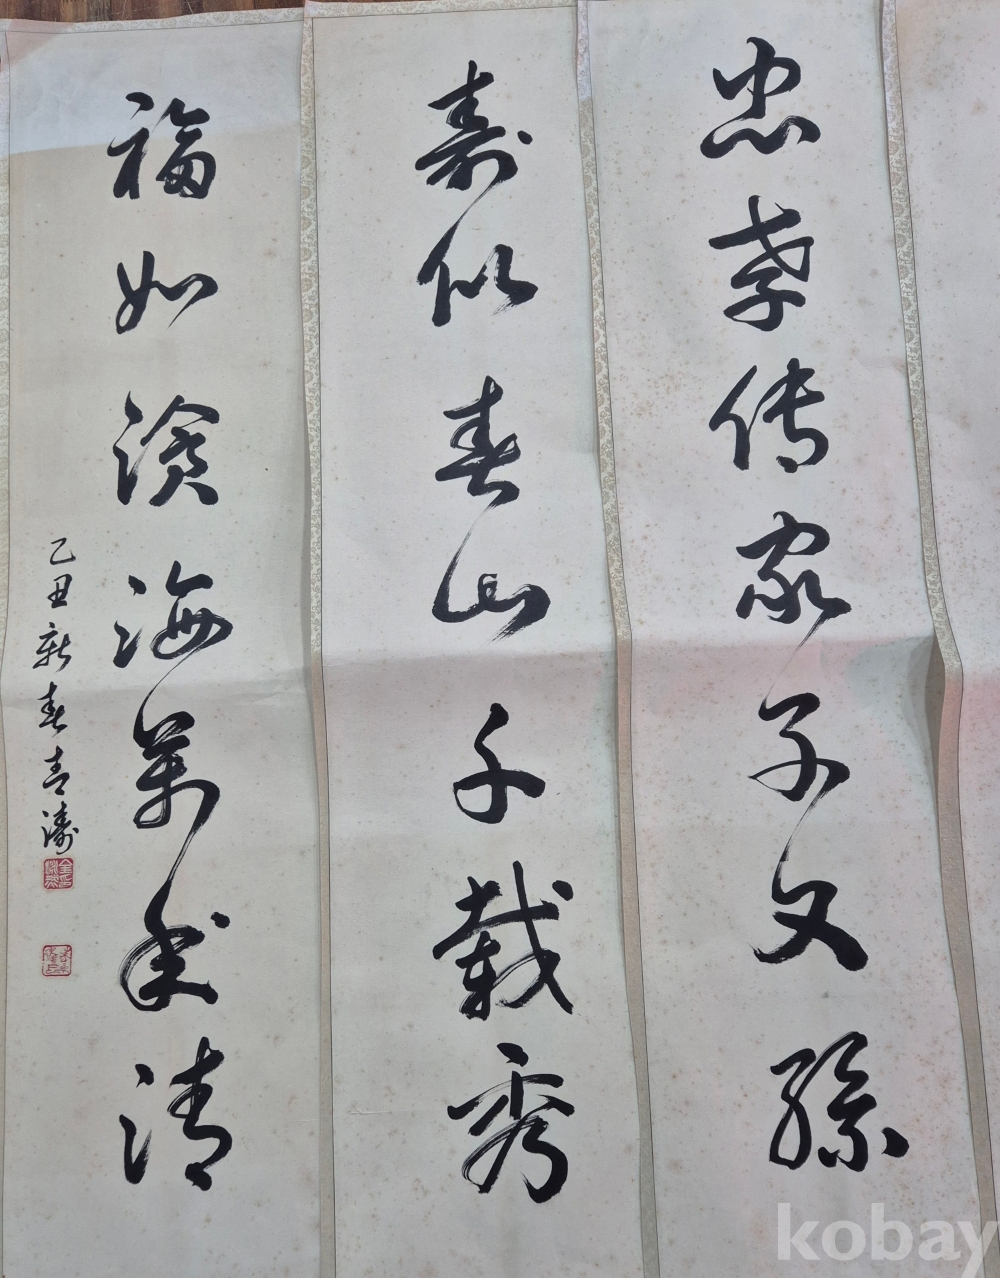 忠孝傳家子又孫
壽似春山千載秀
福如滄海萬年清
乙丑新春青濤
kobay